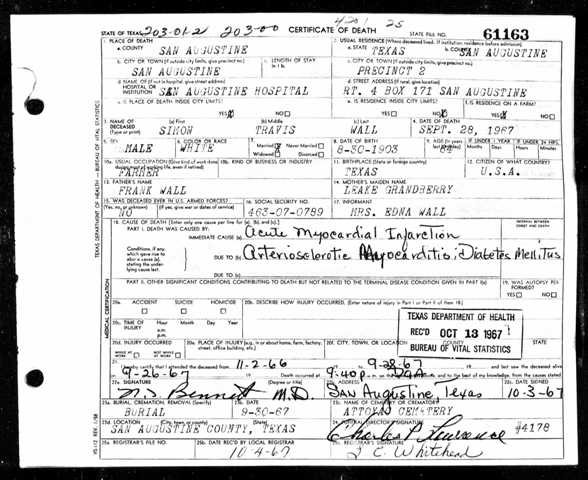 4201 25
STATE OF TEXAS 203-01-2 203-00 CERTIFICATE OF DEATH STATE FILE NO. 61163
1. PLACE OF DEATH 2. USUAL RESIDENCE (Where deceased lived. If institution: residence before admission)
a. COUNTY SAN AUGUSTINE a. STATE TEXAS b. COUNTY SAN AUGUSTINE
b. CITY OR TOWN (If outside city limits, give precinct no.) c. LENGTH OF STAY in 1 b. c. CITY OR TOWN (If outside city limits, give precinct no.)
SAN AUGUSTINE PRECINCT 2
d. NAME OF (If not in hospital, give street address) HOSPITAL OR INSTITUTION SAN AUGUSTINE HOSPITAL d. STREET ADDRESS (If rural, give location) RT. 4 BOX 171 SAN AUGUSTINE
e. IS PLACE OF DEATH INSIDE CITY LIMITS? e. IS RESIDENCE INSIDE CITY LIMITS? f. IS RESIDENCE ON A FARM?
YES NO YES NO YES NO
3. NAME OF DECEASED (Type or print) (a) First (b) Middle (c) Last 4. DATE OF DEATH
SIMON TRAVIS WALL SEPT. 28, 1967
5. SEX 6. COLOR OR RACE 7. Married Never Married Widowed Divorced 8. DATE OF BIRTH 9. AGE IF UNDER 1 YEAR IF UNDER 24 HRS.
MALE WHITE 8-30-1903 64 Months Days Hours Minutes
10a. USUAL OCCUPATION (Give kind of work done during most of working life, even if retired) 10b. KIND OF BUSINESS OR INDUSTRY 11. BIRTHPLACE (State or foreign country) 12. CITIZEN OF WHAT COUNTRY?
FARMER TEXAS U.S.A.
13. FATHER'S NAME 14. MOTHER'S MAIDEN NAME
FRANK WALL LEAKE GRANDBERRY
15. WAS DECEASED EVER IN U.S. ARMED FORCES? 16. SOCIAL SECURITY NO. 17. INFORMANT
(Yes, no, or unknown) (If yes, give war or dates of service)
NO 463-07-0789 MRS. EDNA WALL
18. CAUSE OF DEATH (Enter only one cause per line for (a), (b), and (c).) INTERVAL BETWEEN ONSET AND DEATH
PART I. DEATH WAS CAUSED BY:
IMMEDIATE CAUSE (a) Acute Myocardial Infarction
Conditions, if any, which gave rise to above cause (a), stating the underlying cause last.
DUE TO (b) Arteriosclerotic Myocarditis; Diabetes Mellitus
DUE TO (c)
PART II. OTHER SIGNIFICANT CONDITIONS CONTRIBUTING TO DEATH BUT NOT RELATED TO THE TERMINAL DISEASE CONDITION GIVEN IN PART I(a) 19. WAS AUTOPSY PERFORMED?
YES NO
20a. ACCIDENT SUICIDE HOMICIDE 20b. DESCRIBE HOW INJURY OCCURRED. (Enter nature of injury in Part I or Part II of item 18.)
20c. TIME OF INJURY Hour Month Day Year
a.m.
p.m.
TEXAS DEPARTMENT OF HEALTH
REC'D OCT 13 1967
BUREAU OF VITAL STATISTICS
20d. INJURY OCCURRED 20e. PLACE OF INJURY (e.g., in or about home, farm, factory, street, office building, etc.) 20f. CITY, TOWN, OR LOCATION COUNTY
WHILE AT WORK NOT WHILE AT WORK
21. I hereby certify that I attended the deceased from 11-2-66 9-28-67 and last saw the deceased alive
9-26-67 Death occurred at 9:40p DOA on the date stated above, and to the best of my knowledge, from the causes stated.
22a. SIGNATURE (Degree or title) 22b. ADDRESS 22c. DATE SIGNED
Bennett M.D. San Augustine, Texas 10-3-67
23a. BURIAL, CREMATION, REMOVAL (Specify) 23b. DATE 23c. NAME OF CEMETERY OR CREMATORY
BURIAL 9-30-67 ATTOYAC CEMETERY
23d. LOCATION (City, town, or county) (State) 24. FUNERAL DIRECTOR'S SIGNATURE
SAN AUGUSTINE COUNTY, TEXAS Charles P. Lawrence #4178
25a. REGISTRAR'S FILE NO. 25b. DATE REC'D BY LOCAL REGISTRAR 25c. REGISTRAR'S SIGNATURE
10-4-67 J C Whitehead
TEXAS DEPARTMENT OF HEALTH—BUREAU OF VITAL STATISTICS
MEDICAL CERTIFICATION
VS-112 REV. 1/58